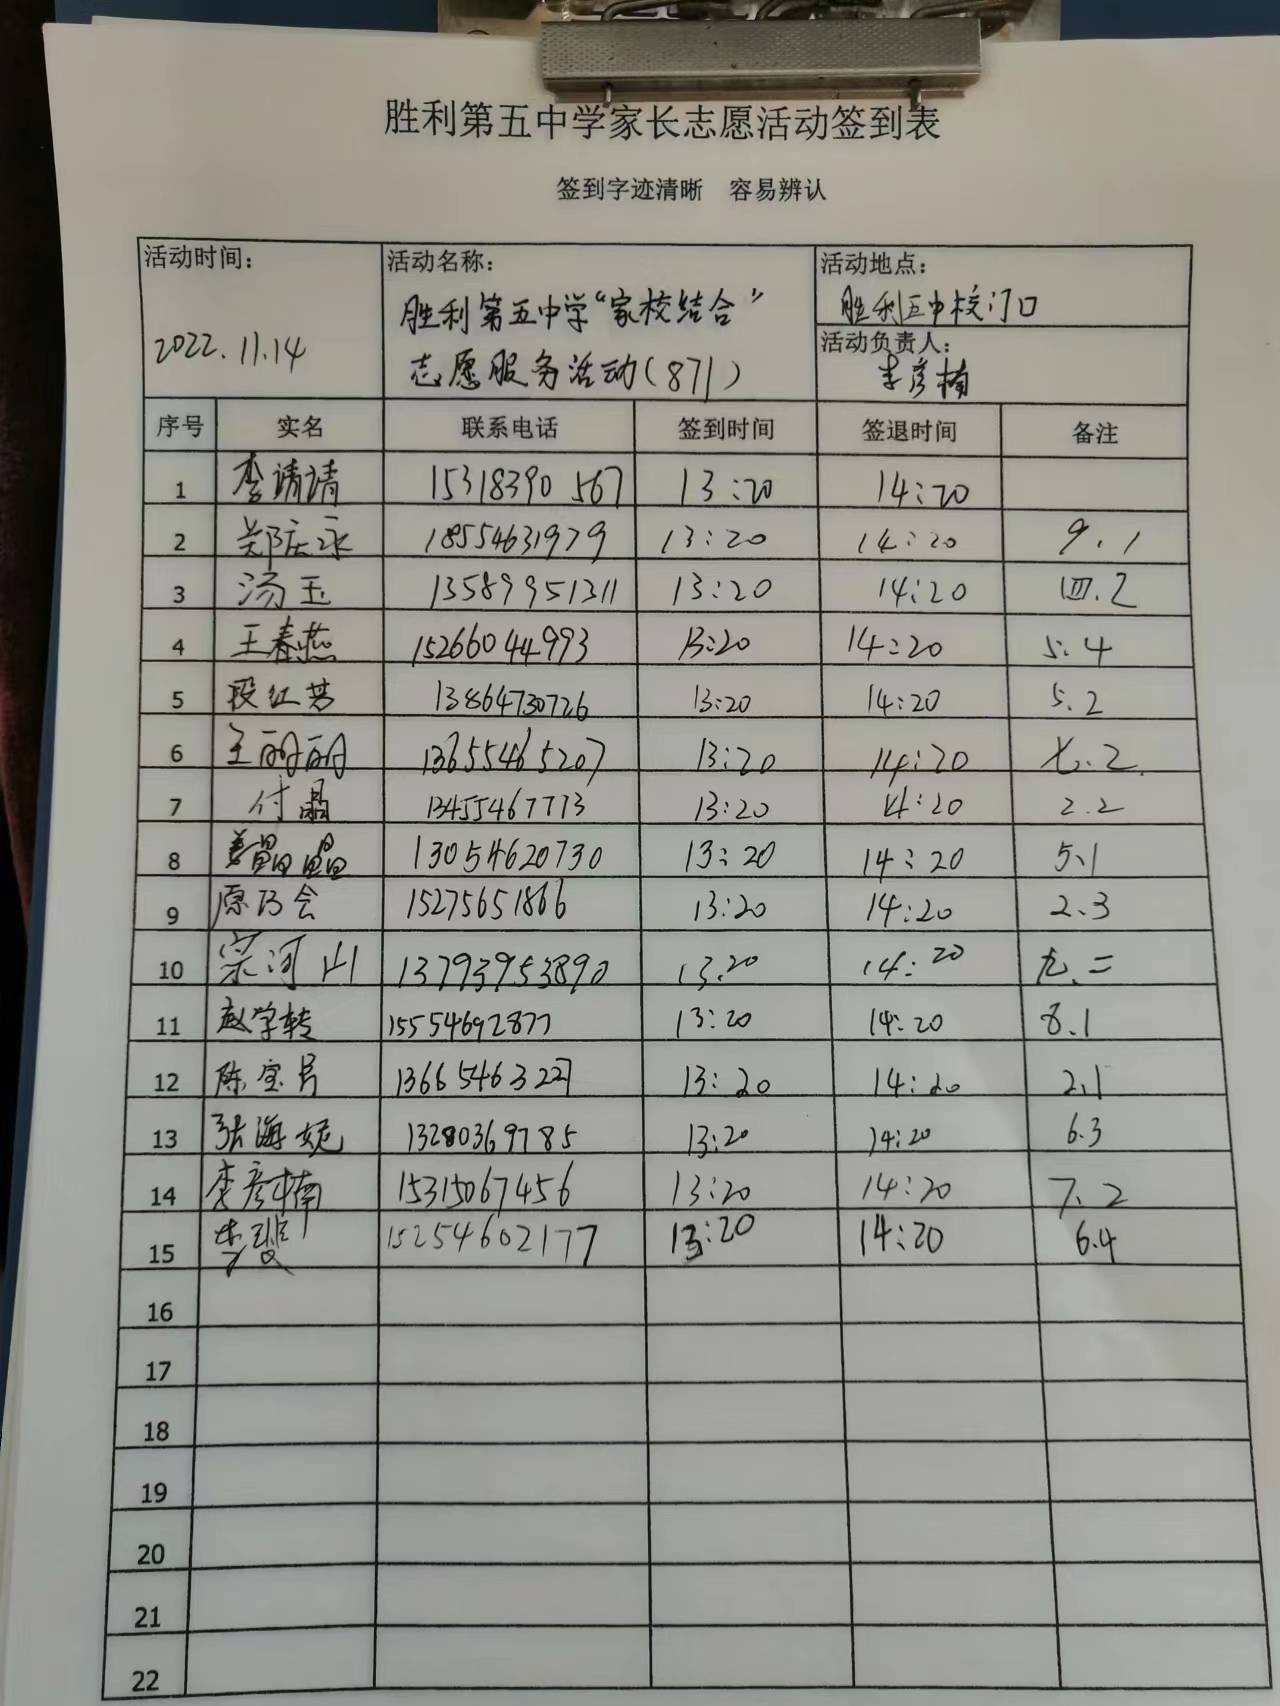 胜利第五中学家长志愿活动签到表
签到字迹清晰 容易辨认
活动时间: 活动名称: 活动地点:
胜利第五中学“家校结合” 胜利五中校门口
2022.11.14 志愿服务活动(871) 活动负责人:
李彦楠
序号 实名 联系电话 签到时间 签退时间 备注
1 李请请 15318390567 13:20 14:20
2 郑庆永 18554631979 13:20 14:20 9.1
3 汤玉 13589951311 13:20 14:20 四.2
4 王春燕 15266044993 13:20 14:20 5.4
5 段红芳 13864730726 13:20 14:20 5.2
6 王丽丽 13655465207 13:20 14:20 七.2
7 付晶 13455467773 13:20 14:20 2.2
8 姜晶晶 13054620730 13:20 14:20 5.1
9 原巧会 15275651866 13:20 14:20 2.3
10 宗河山 13793953890 13.20 14:20 九.二
11 赵学转 15554692877 13:20 14:20 8.1
12 陈宝号 13665463227 13:20 14:20 2.1
13 张海妮 13280369785 13:20 14:20 6.3
14 李彦楠 15315067456 13:20 14:20 7.2
15 李斐 15254602177 13:20 14:20 6.4
16
17
18
19
20
21
22